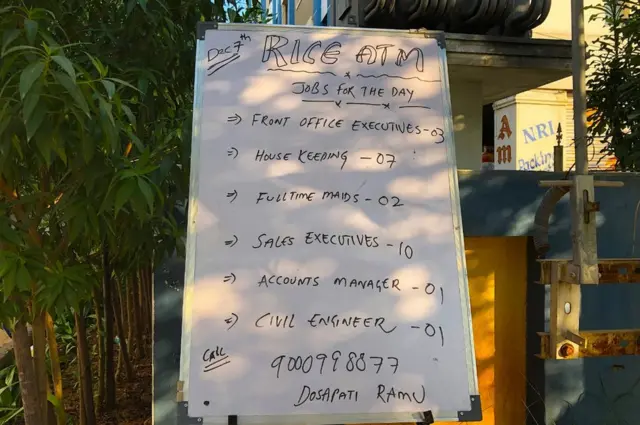 Dec 7th
RICE ATM
JOBS FOR THE DAY
⇒ FRONT OFFICE EXECUTIVES - 03
⇒ HOUSE KEEDING - 07
⇒ FULLTIME MAIDS - 02
⇒ SALES EXECUTIVES - 10
⇒ ACCOUNTS MANAGER - 01
⇒ CIVIL ENGINEER - 01
CALL 9000998877
DOSAPATI RAMU
Am
NRI
Packing